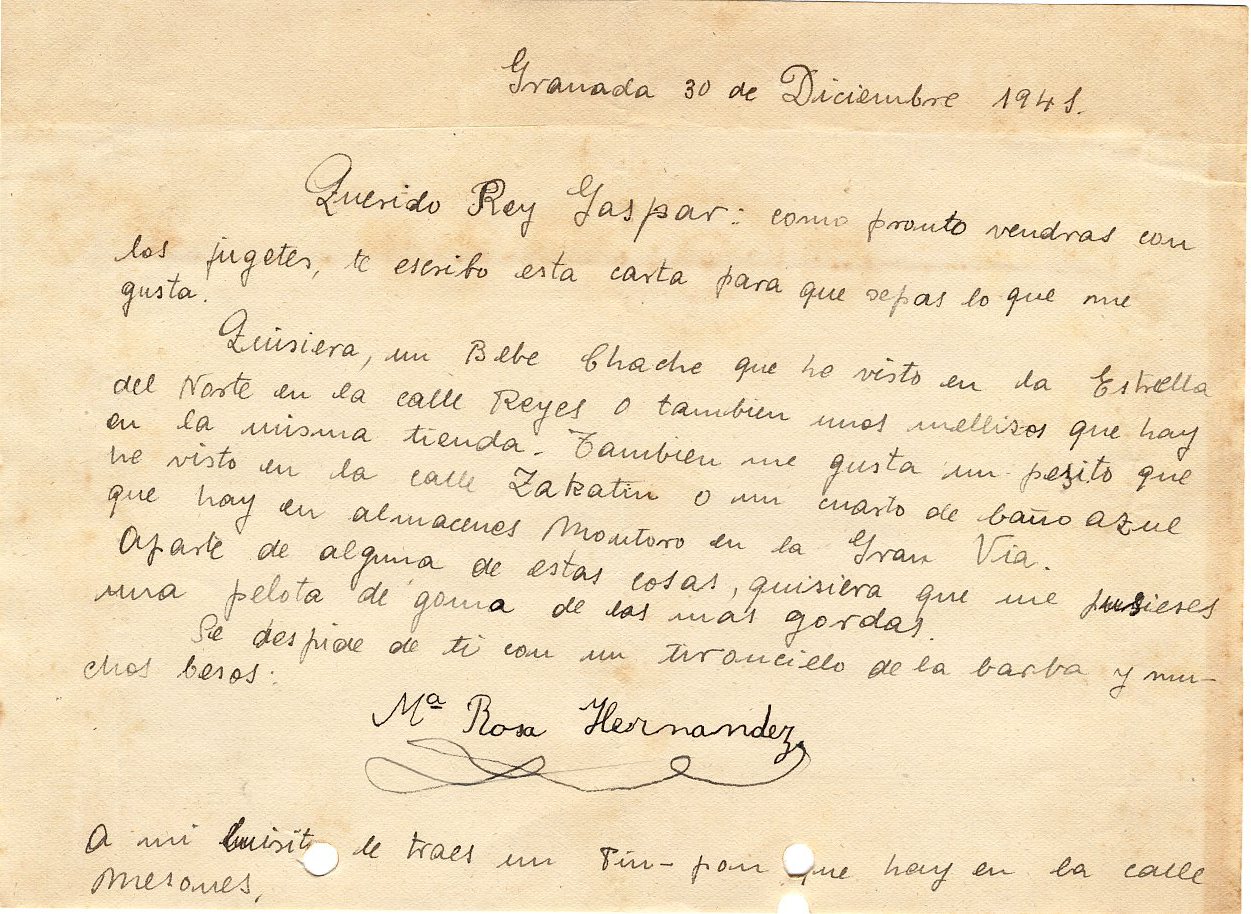 Granada 30 de Diciembre 1941.
Querido Rey Gaspar: como pronto vendras con
los jugetes, te escribo esta carta para que sepas lo que me
gusta.
Quisiera, un Bebe Chache que he visto en la Estrella
del Norte en la calle Reyes o tambien unos mellizos que hay
en la misma tienda. Tambien me gusta un pezito que
he visto en la calle Zakatin o un cuarto de baño azul
que hay en almacenes Montoro en la Gran Via.
Aparte de alguna de estas cosas, quisiera que me pusieses
una pelota de goma de las mas gordas.
Se despide de ti con un tironcillo de la barba y mu-
chos besos:
Mª Rosa Hernandez
A mi Luisito le traes un Pin-pon que hay en la calle
Mesones,